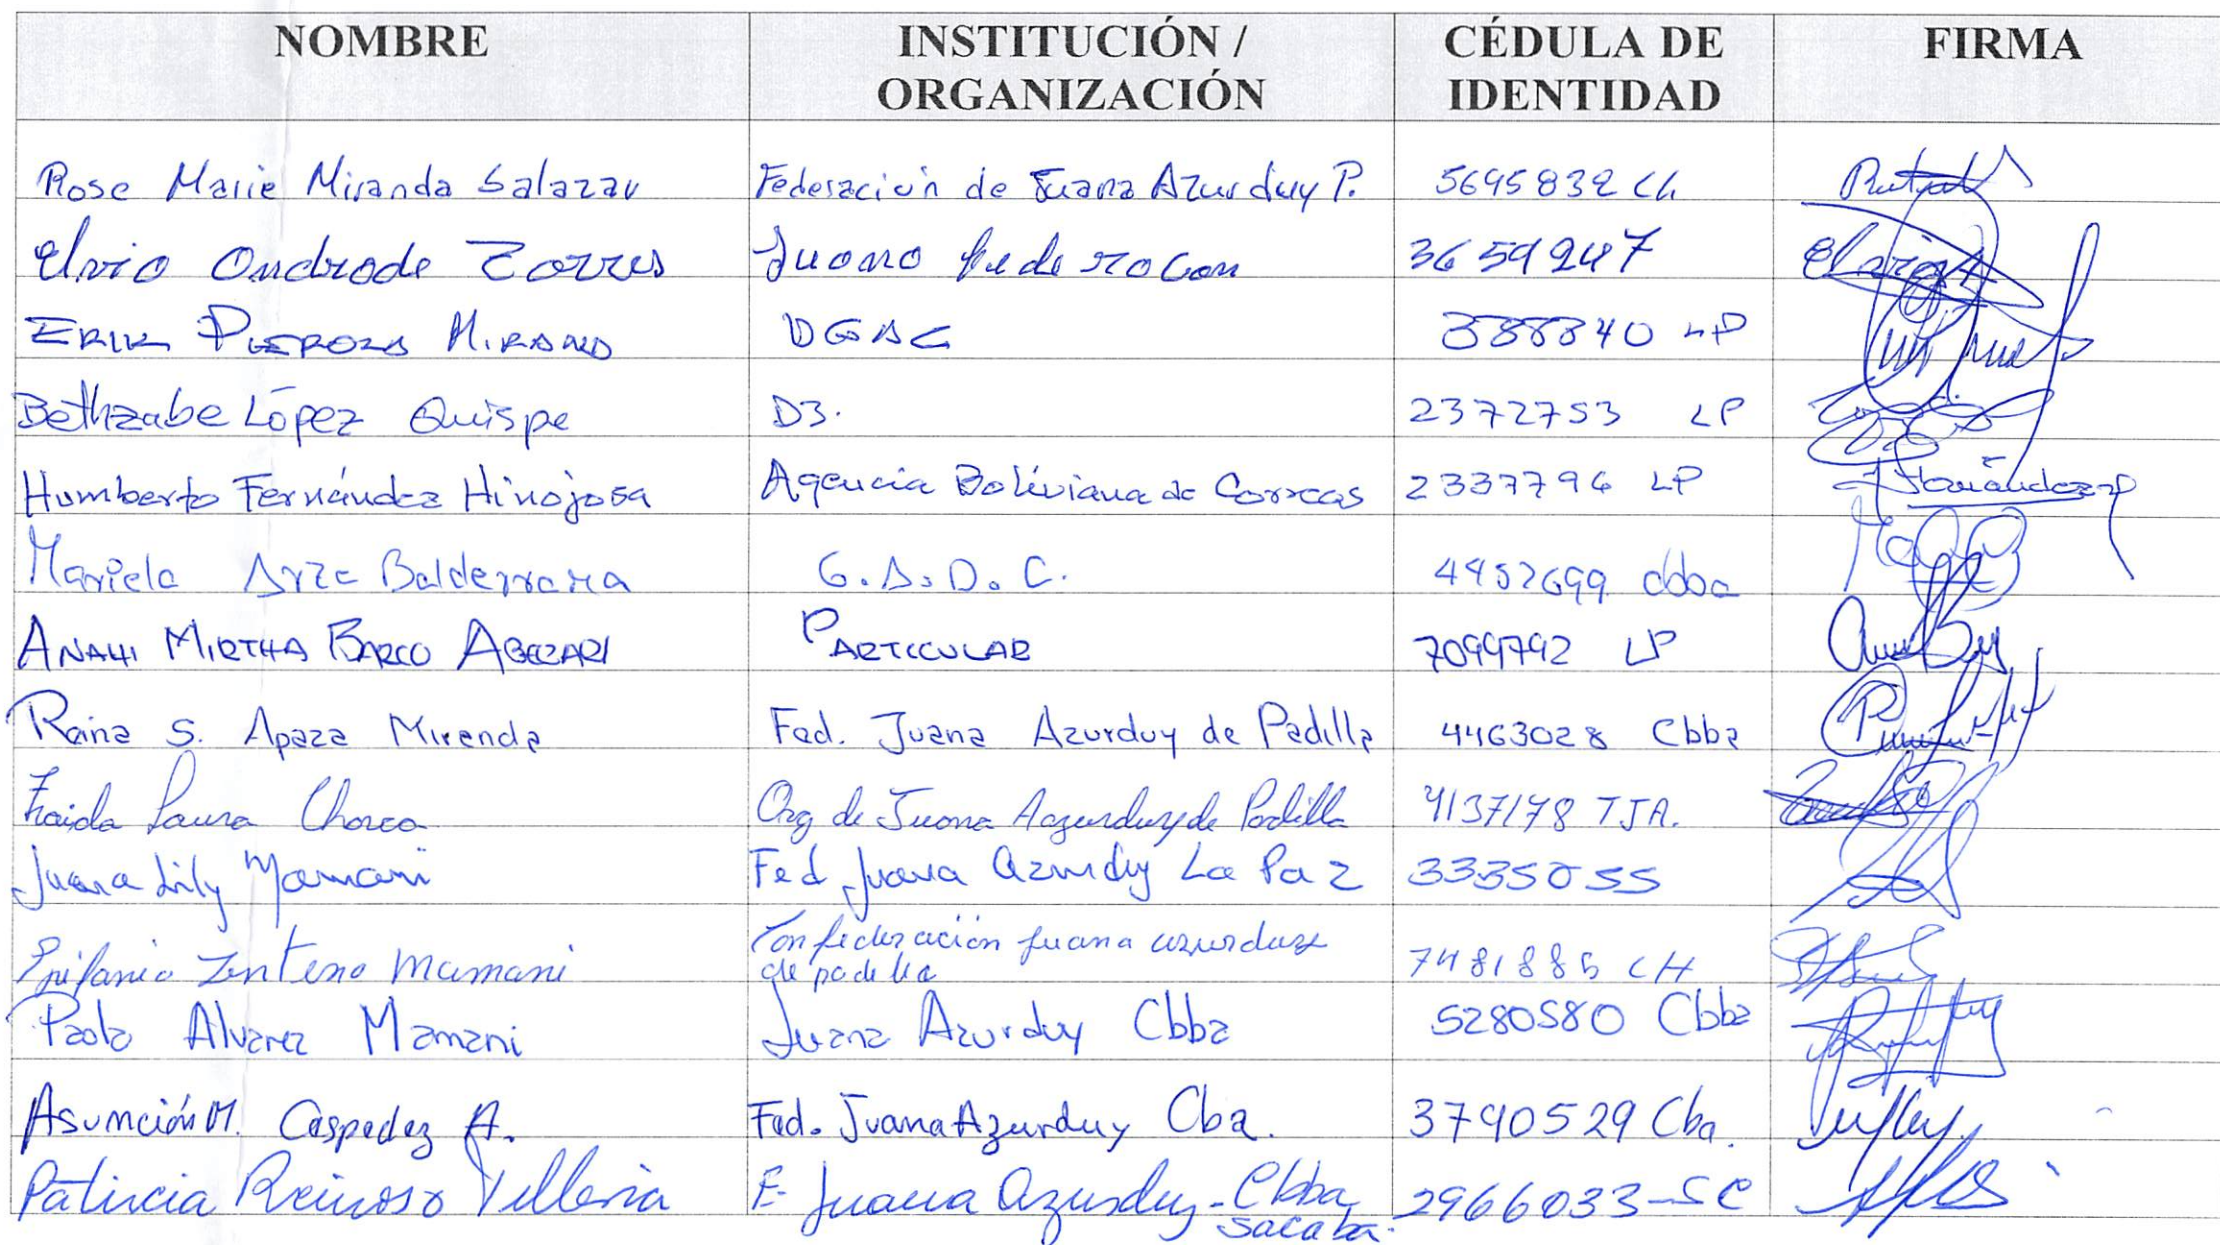 NOMBRE INSTITUCIÓN / ORGANIZACIÓN CÉDULA DE IDENTIDAD FIRMA
Rose Marie Miranda Salazar Federación de Juana Azurduy P. 5695832 Ch
Elvio Andrade Torres Juana 3659247 Elvio
ERIK MIRAND DGAC 388840 LP
Bethzabe López Quispe D3. 2372753 LP
Humberto Fernández Hinojosa Agencia Boliviana de Correos 2337796 LP Fernández
Mariela Arze Balderrama G.A.D.C. 4452699 cbba
ANAHI MIRTHA BARCO PARTICULAR 7099792 LP
Raina S. Apaza Mirenda Fed. Juana Azurduy de Padilla 4463028 Cbba
Laura Choreo Org de Juana Azurduy de Padilla 4137178 TJA.
Juana Lily Mamani Fed Juana Azurduy La Paz 3335055
Epifania Zenteno Mamani Confederación Juana azurduy
de padilla 7481886 CH
Paola Alvarez Mamani Juana Azurduy Cbba 5280580 Cbba
Asunción M. Cespedez A. Fed. Juana Azurduy Cba. 3790529 Cba.
Patircia Reinoso Villena F. Juana Azurduy - Cbba
Sacaba. 2966033-SC